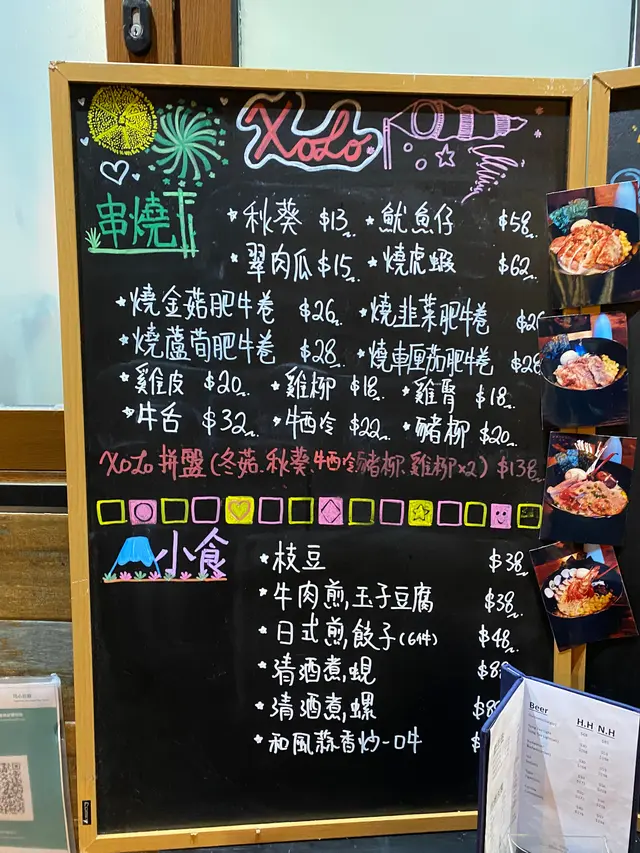 XoLo
串燒
*秋葵 $13 *魷魚仔 $58
*翠肉瓜 $15 *燒虎蝦 $62
*燒金菇肥牛卷 $26 *燒韭菜肥牛卷
*燒蘆荀肥牛卷 $28 *燒車厘茄肥牛卷 $28
*雞皮 $20 *雞柳 $18 *雞腎 $18
*牛舌 $32 *牛西冷 $22 *豬柳 $20
XoLo拼盤(冬菇.秋葵.牛西冷.豬柳.雞柳x2) $138
小食
*枝豆 $38
*牛肉煎玉子豆腐 $38
*日式煎餃子(6件) $48
*清酒煮蜆
*清酒煮螺
*和風蒜香炒一口牛
Beer H.H N.H